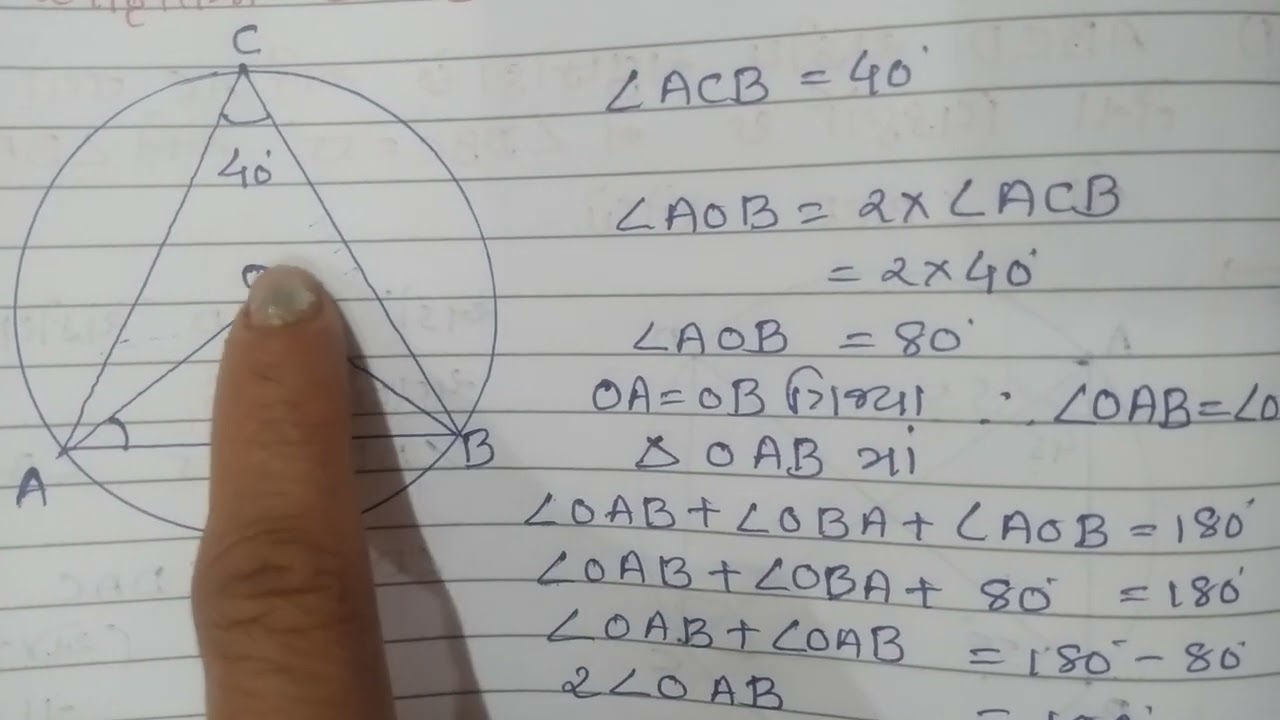 C
40°
A
B
∠ACB = 40°
∠AOB = 2×∠ACB
= 2×40°
∠AOB = 80°
OA=OB ત્રિજ્યા ∴ ∠OAB=∠O
△ OAB માં
∠OAB+∠OBA+∠AOB=180°
∠OAB+∠OBA+ 80° =180°
∠OAB+∠OAB =180°-80°
2∠OAB